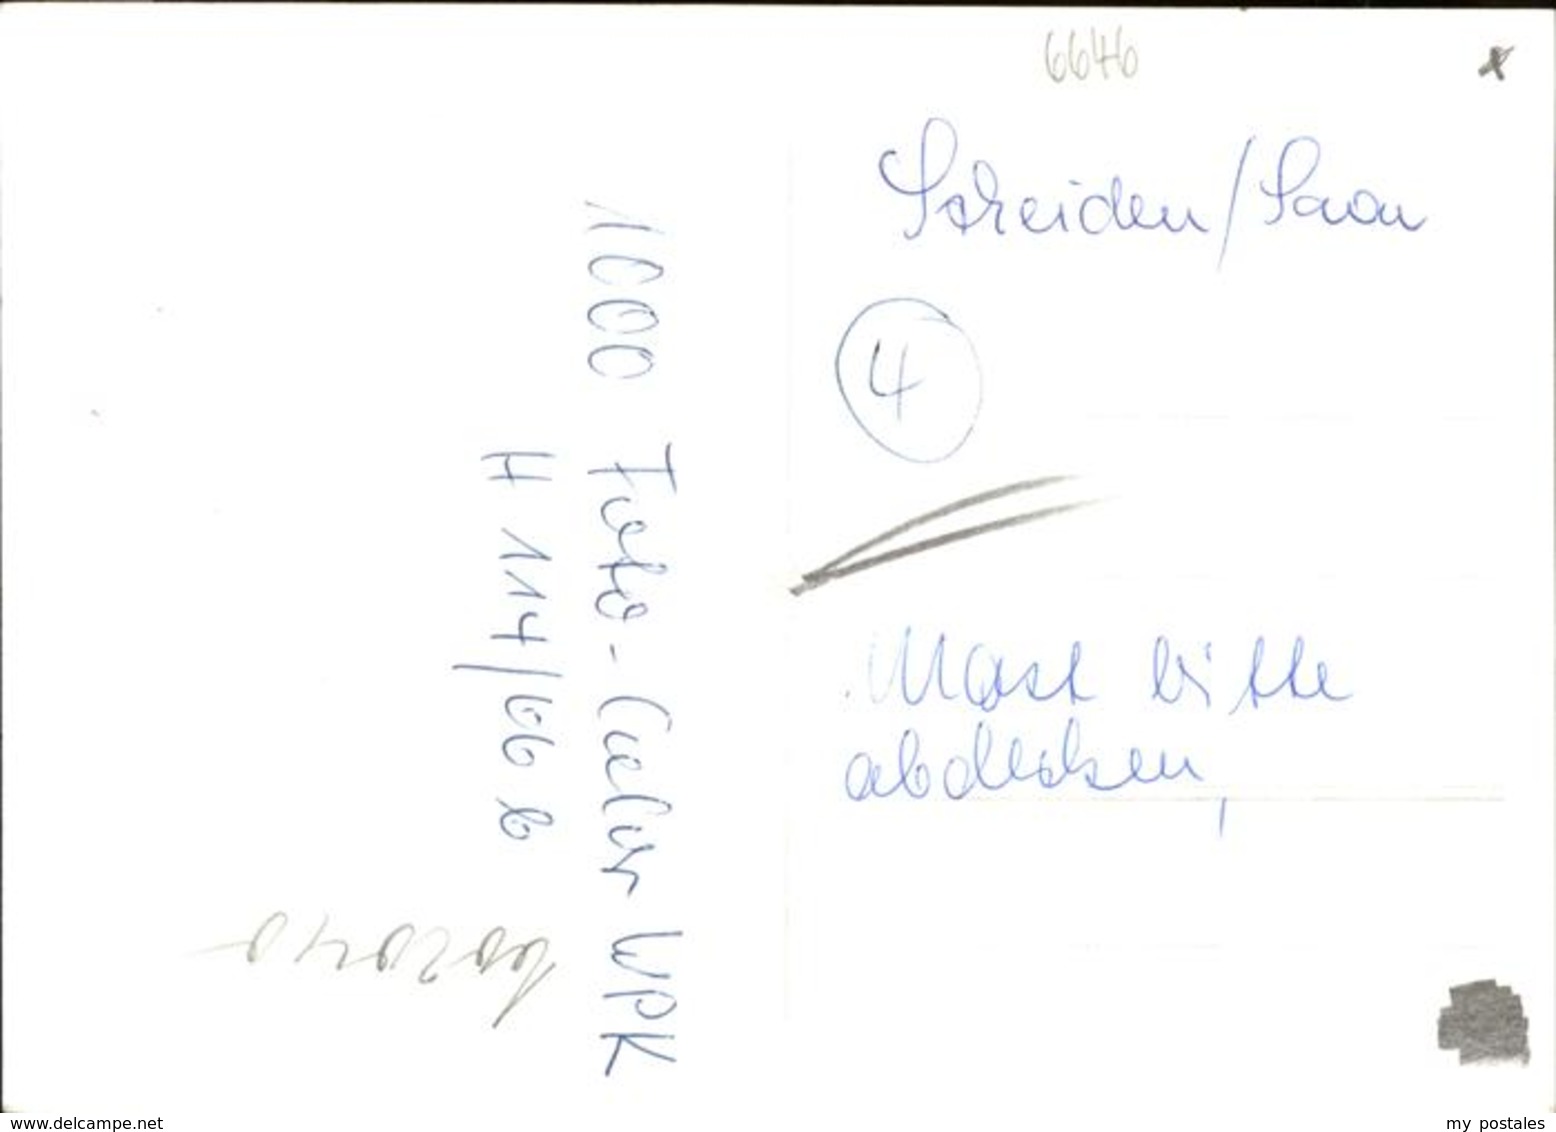 6646
Scheiden/Saar
4
Mast bitte
abdecken,
1000 Foto-Color WPK
H 114/66 b
www.delcampe.net
my postales